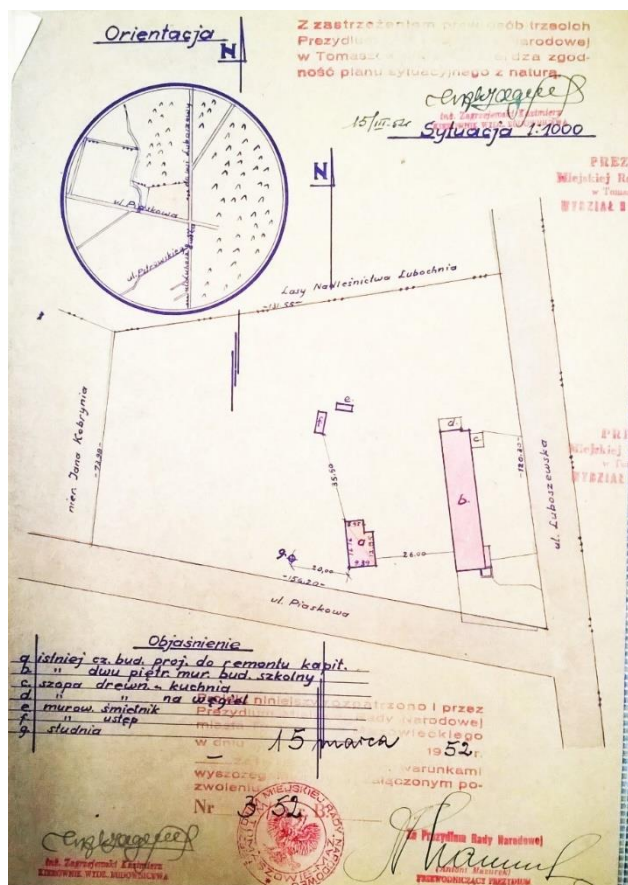 Orientacja
N
Z zastrzeżeniem praw osób trzecich
Prezydium Narodowej
w Tomaszowie zgod-
ność planu sytuacyjnego z naturą.
15/III.52
Inż. Zagrzejewski Kazimierz
KIEROWNIK WYDZ. BUDOWNICTWA
Sytuacja 1:1000
N
PREZ
Miejskiej Ra
w Toma
WYDZIAŁ B
ul. Piaskowa
ul. Piotrowskiego
Lasy Nadleśnictwa Lubochnia
nier. Jana Kobrynia
-72.90-
e.
f
d.
c
b.
a
g
35.50
20,00
26.00
-154.20-
-120.20-
ul. Luboszewska
ul. Piaskowa
PRE
Miejskiej
w T
WYDZIAŁ
Objaśnienie
a istniej cz. bud. proj. do remontu kapit.
b " dwu piętr. mur. bud. szkolny
c szopa drewn. - kuchnia
d " " na węgiel
e murow. śmietnik
f " ustęp
g studnia
niniejszy rozpatrzono i przez
Prezydium Rady Narodowej
w dniu 15 marca 1952 r.
warunkami
wyszczeg łączonym po-
zwoleniu
Nr 3/52 B
Inż. Zagrzejewski Kazimierz
KIEROWNIK WYDZ. BUDOWNICTWA
Za Prezydium Rady Narodowej
(Antoni Mazurek)
PRZEWODNICZĄCY PREZYDIUM